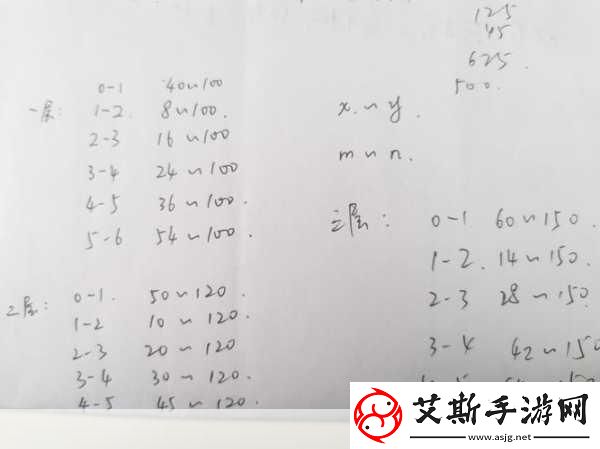 125
45
625
500.
一层: 0-1 40~100
1-2. 8~100.
2-3 16~100
3-4 24~100
4-5 36~100.
5-6 54~100.
x~y.
m~n.
二层: 0-1. 50~120.
1-2 10~120.
2-3 20~120
3-4 30~120.
4-5 45~120.
三层: 0-1 60~150.
1-2. 14~150.
2-3 28~150
3-4 42~150
艾斯手游网
www.asjg.net